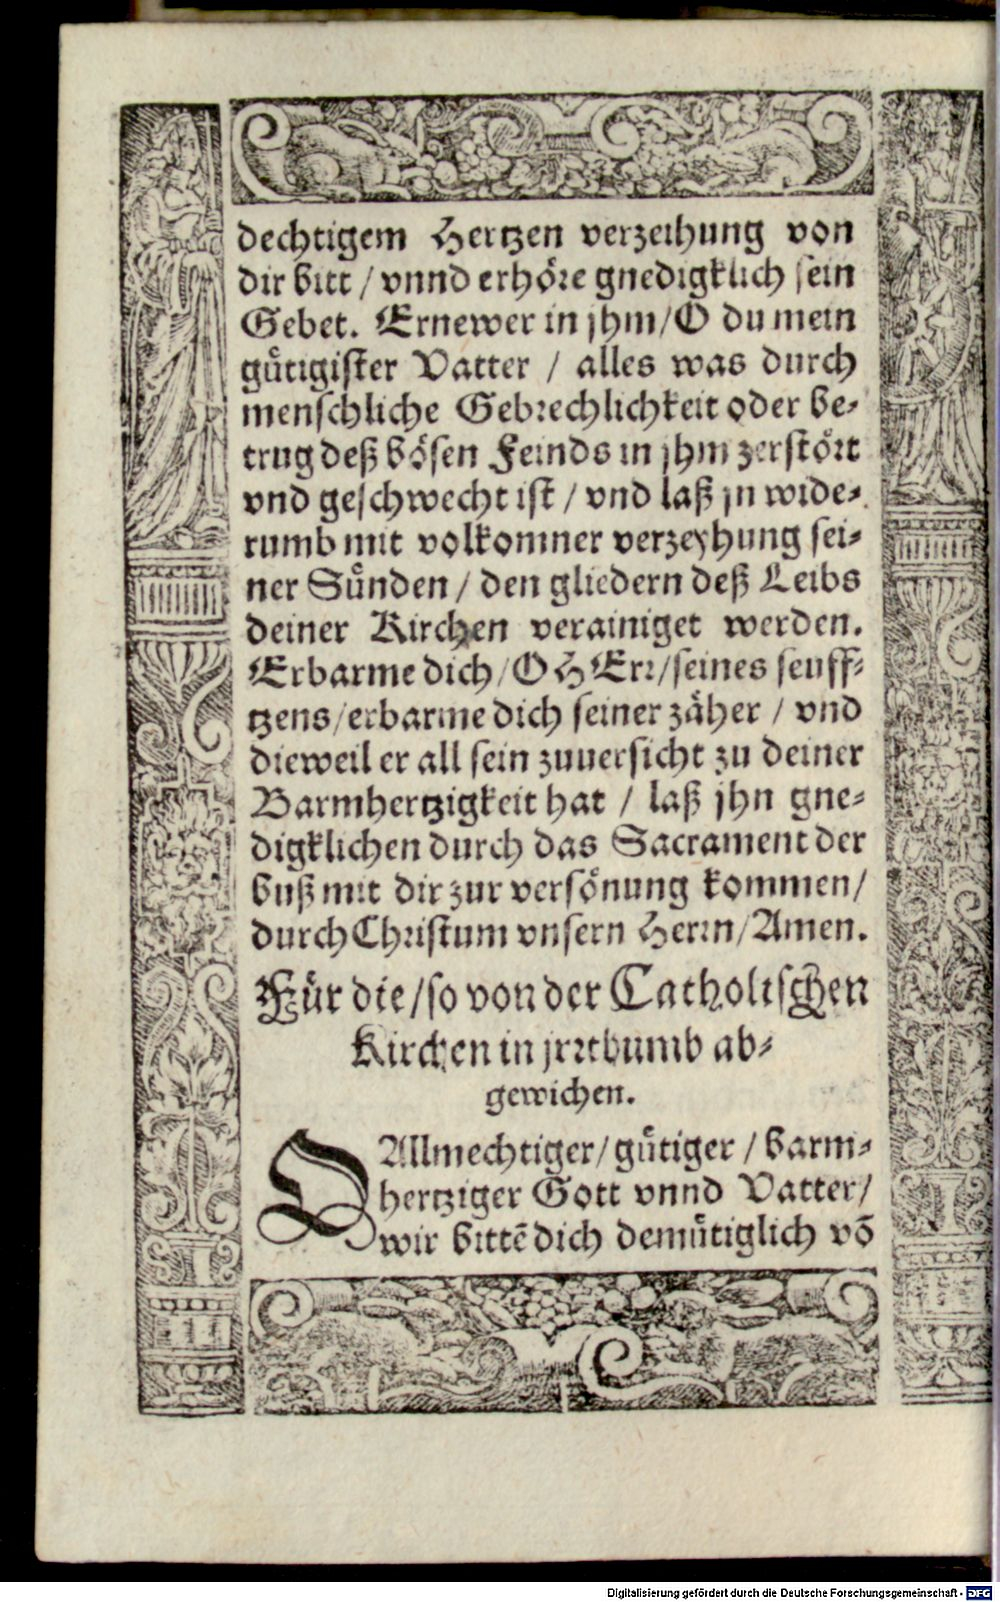 dechtigem Hertzen verzeihung von
dir bitt / vnnd erhöre gnedigklich sein
Gebet. Ernewer in jhm / O du mein
gütigister Vatter / alles was durch
menschliche Gebrechlichkeit oder be-
trug deß bösen Feinds in jhm zerstört
vnd geschwecht ist / vnd laß jn wide-
rumb mit volkomner verzeyhung sei-
ner Sünden / den gliedern deß Leibs
deiner Kirchen verainiget werden.
Erbarme dich / O HErr / seines seuff-
tzens / erbarme dich seiner zäher / vnd
dieweil er all sein zuuersicht zu deiner
Barmhertzigkeit hat / laß jhn gne-
digklichen durch das Sacrament der
buß mit dir zur versönung kommen /
durch Christum vnsern Herrn / Amen.
Für die / so von der Catholischen
Kirchen in jrrthumb ab-
gewichen.
O Allmechtiger / gütiger / barm-
hertziger Gott vnnd Vatter /
wir bittē dich demütiglich vō
Digitalisierung gefördert durch die Deutsche Forschungsgemeinschaft - DFG